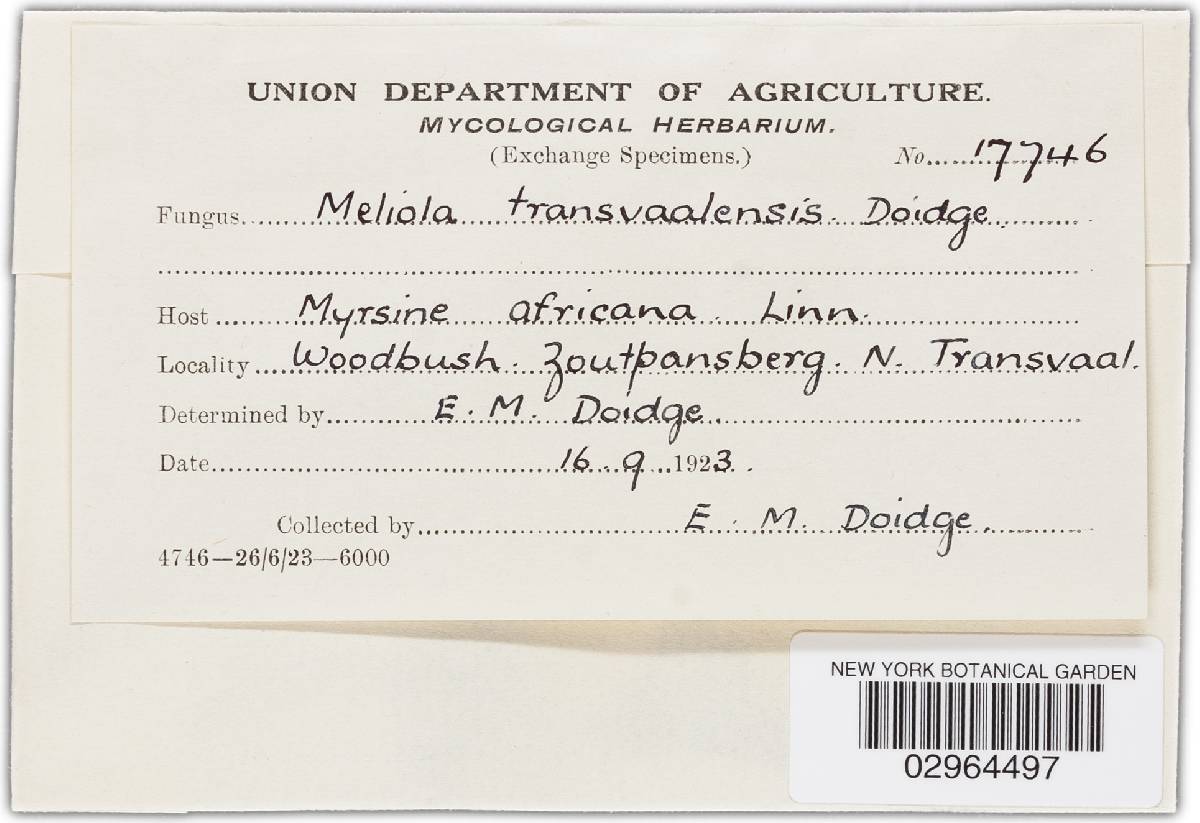 UNION DEPARTMENT OF AGRICULTURE.
MYCOLOGICAL HERBARIUM.
(Exchange Specimens.) No. 17746
Fungus. Meliola transvaalensis. Doidge.
Host Myrsine africana. Linn.
Locality Woodbush. Zoutpansberg. N. Transvaal.
Determined by E. M. Doidge.
Date 16.9.1923.
Collected by E. M. Doidge.
4746—26/6/23—6000
NEW YORK BOTANICAL GARDEN
02964497